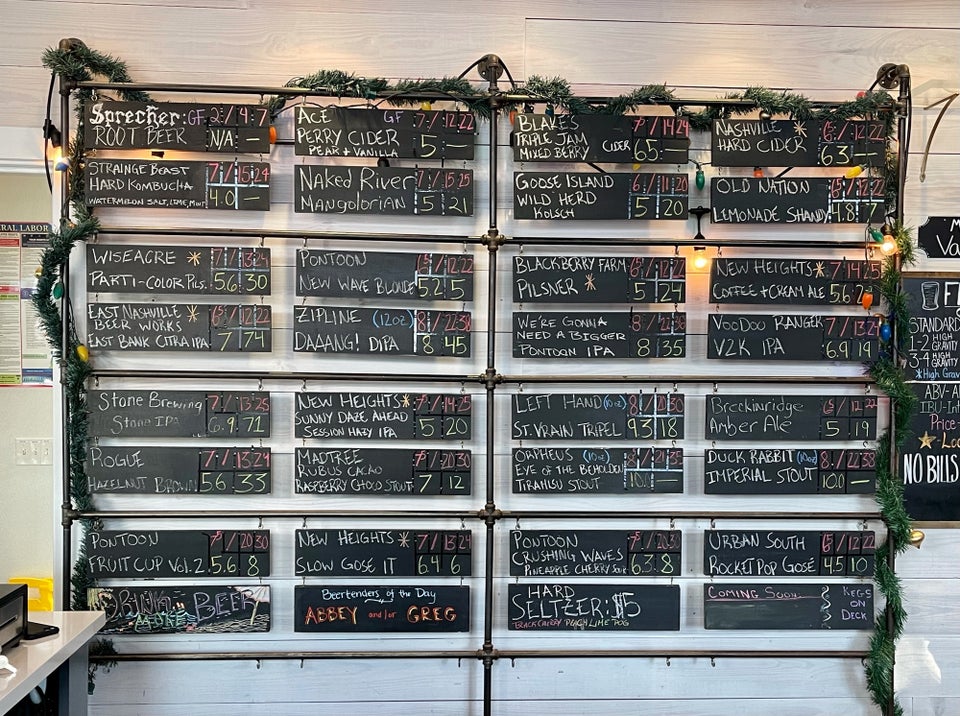 Sprecher: GF 2/4/7
ROOT BEER N/A —
ACE GF 7/12/22
PERRY CIDER 5 —
PEAR + VANILLA
BLAKES
TRIPLE JAM
MIXED BERRY CIDER 6.5 —
NASHVILLE * 6/12/22
HARD CIDER 6.3 —
STRAINGE BEAST 7/15/24
HARD KOMBUCHA
WATERMELON SALT, LIME, MINT 4.0 —
NAKED RIVER 7/15/25
MANGOLORIAN 5 21
GOOSE ISLAND 6/11/20
WILD HERD 5 20
KOLSCH
OLD NATION
LEMONADE SHANDY 4.8 7
WISEACRE * 7/13/24
PARTI-COLOR PILS. 5.6 30
PONTOON
NEW WAVE BLONDE 5.2 5
BLACKBERRY FARM 6/12/22
PILSNER * 5 24
NEW HEIGHTS * 7/14/25
COFFEE + CREAM ALE 5.6
EAST NASHVILLE *
BEER WORKS
EAST BANK CITRA IPA 7 74
ZIPLINE (12oz)
DAAANG! DIPA 8 45
WE'RE GONNA
NEED A BIGGER
PONTOON IPA 8 35
VOODOO RANGER 7/13/24
V2K IPA 6.9 19
Stone Brewing 7/13/25
Stone IPA 6.9 71
NEW HEIGHTS * 7/14/25
SUNNY DAZE AHEAD 5 20
SESSION HAZY IPA
LEFT HAND (10oz) 8/20/30
ST. VRAIN TRIPEL 9.3 18
Breckinridge 6/12/22
Amber Ale 5 19
ROGUE 7/13/24
HAZELNUT BROWN 5.6 33
MADTREE 7/20/30
RUBUS CACAO
RASPBERRY CHOCO STOUT 7 12
ORPHEUS (10oz)
EYE OF THE BEHOLDER
TIRAMISU STOUT 10.0 —
DUCK RABBIT (10oz) 8/22/30
IMPERIAL STOUT 10.0 —
PONTOON 7/20/30
FRUIT CUP VOL. 2 5.6 8
NEW HEIGHTS * 7/13/24
SLOW GOSE IT 6.4 6
PONTOON 7/20/30
CRUSHING WAVES 6.3 8
PINEAPPLE CHERRY SOUR
URBAN SOUTH 6/12/22
ROCKET POP GOSE 4.5 10
DRINK BEER
MORE
Beertenders of the Day
ABBEY and/or GREG
HARD
SELTZER: $5
BLACK CHERRY PEACH LIME POG
COMING SOON: KEGS
ON
DECK
STANDARD
1-2 HIGH
GRAVITY
3-4 HIGH
GRAVITY
*High Grav
ABV-A
IBU-Int
Price-
NO BILLS